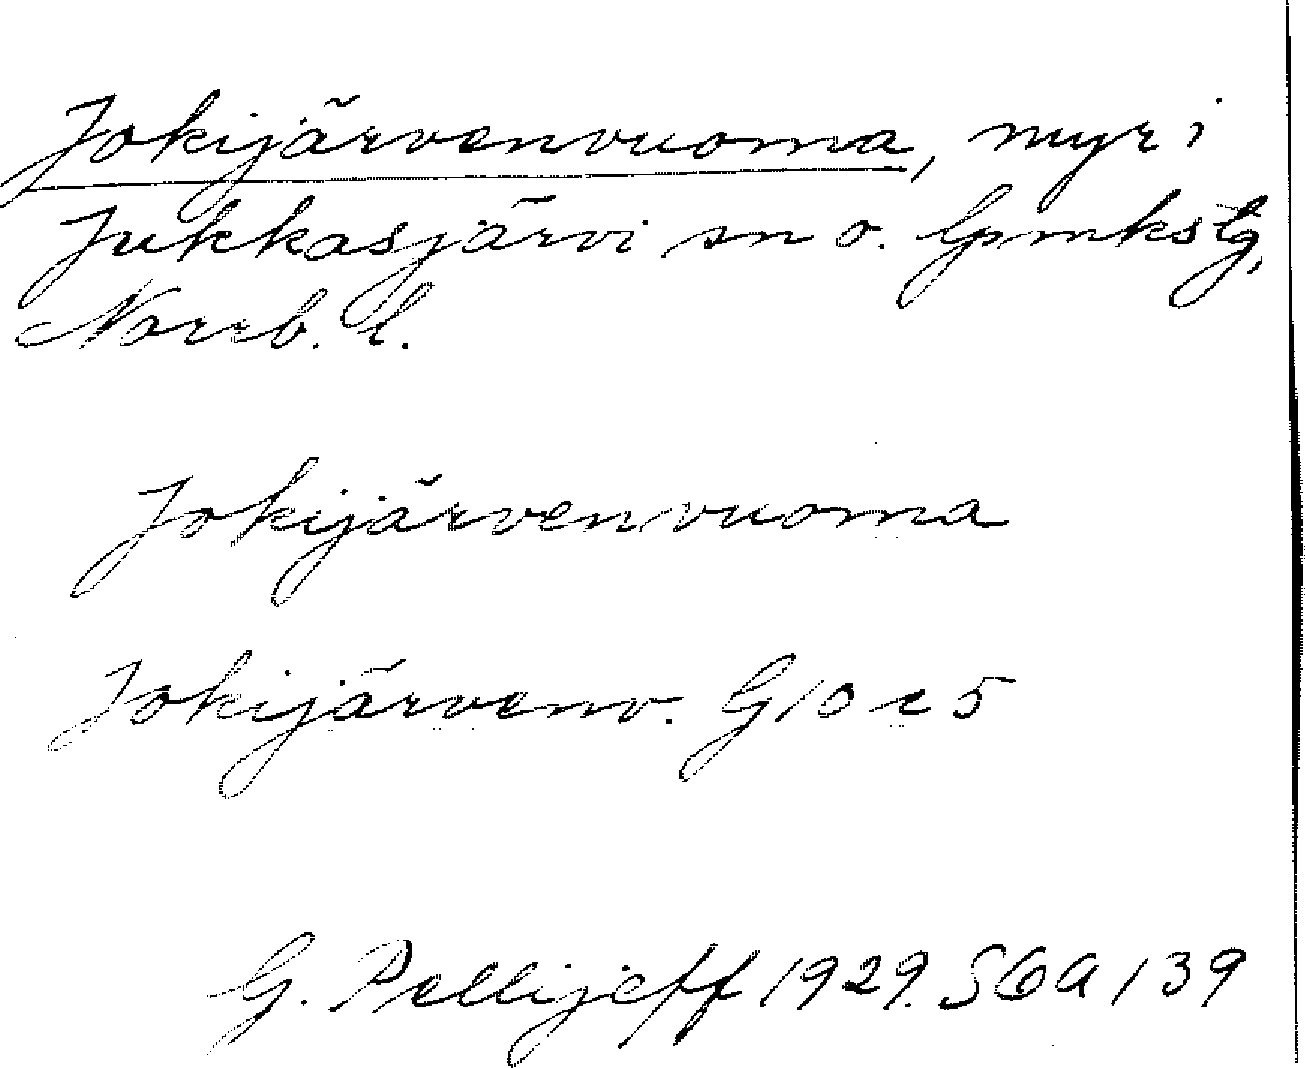 Jokijärvenvuoma, myr i
Jukkasjärvi sn o. lpmkstg,
Norrb. l.
Jokijärvenvuoma
Jokijärvenv. G 10 e 5
G. Pellijeff 1929. SGA 139